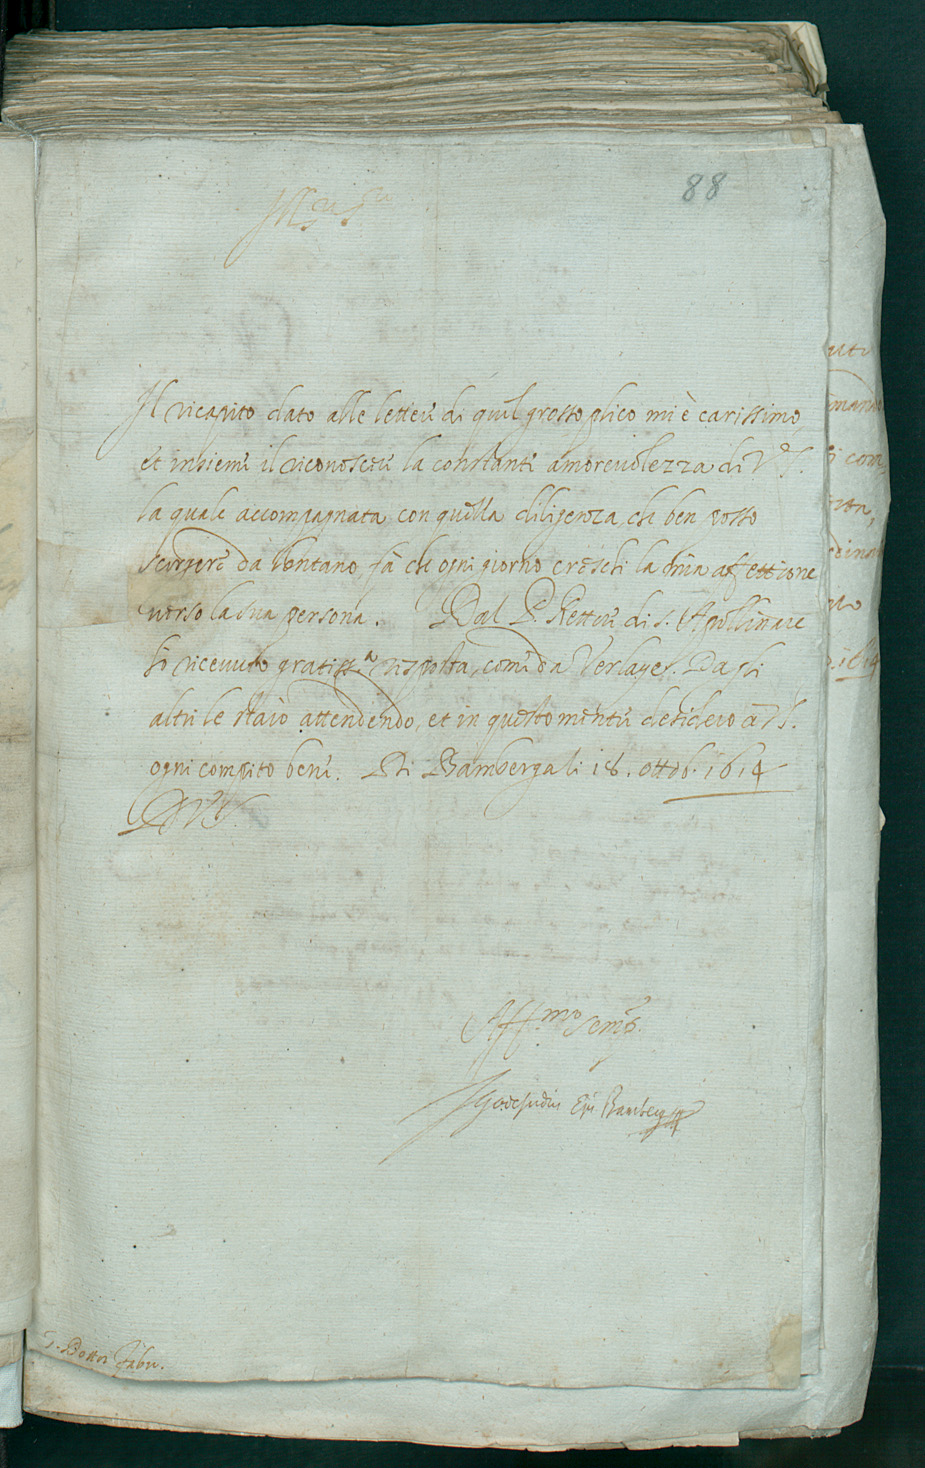 88
Ill.re S.re
Il ricapito dato alle lettere di quel grosso plico mi è carissimo,
et insieme il riconoscere la constante amorevolezza di V. S.
la quale accompagnata con quella diligenza, che ben posso
scorgere da lontano, fà che ogni giorno creschi la mia affettione
verso la sua persona. Dal P. Rettore di S. Apollinare
hò ricevuto gratiss.a risposta, come da Verlayer. Dagli
altri le starò attendendo, et in questo mentre desidero à V. S.
ogni compito bene. Di Bamberga li 18. ottob. 1614
D V S.
Aff.mo semp.
Epi. Bamberg
S. Dottor Fabri.